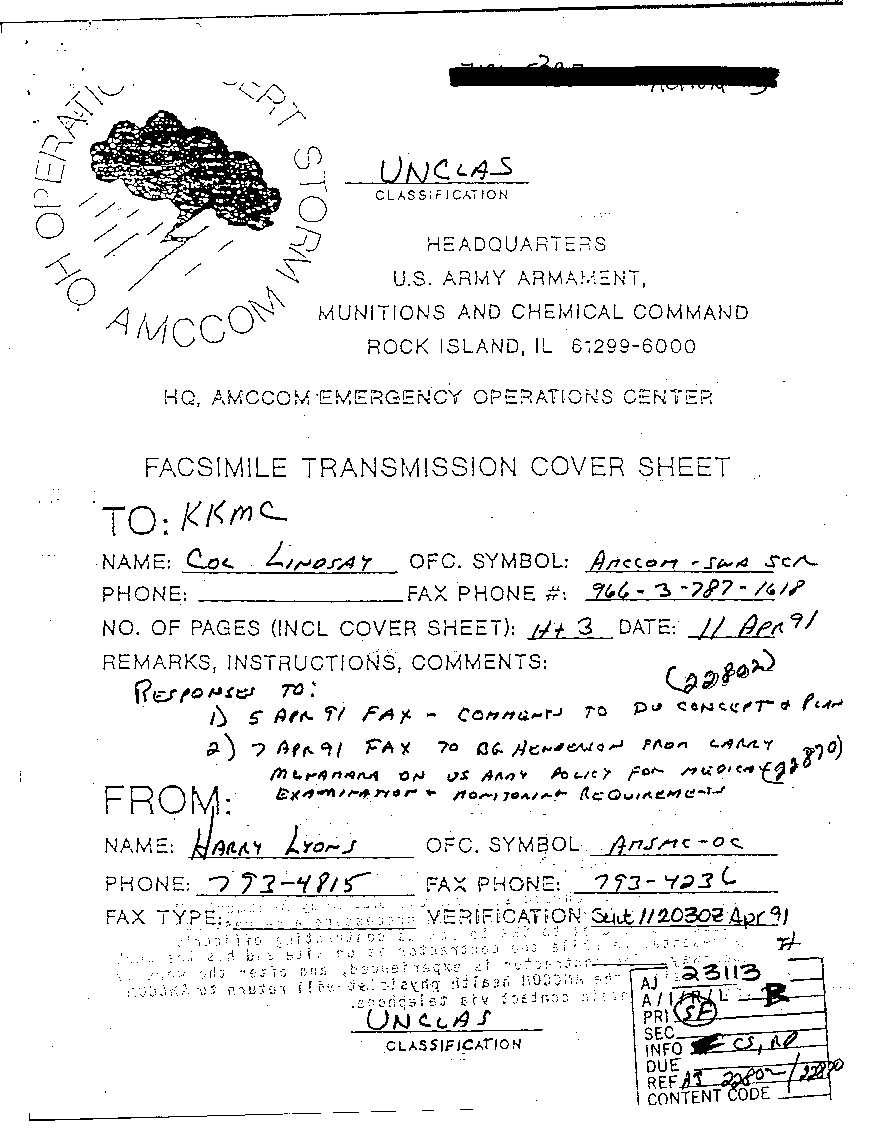 HQ OPERATION DESERT STORM AMCCOM
UNCLAS
CLASSIFICATION
HEADQUARTERS
U.S. ARMY ARMAMENT,
MUNITIONS AND CHEMICAL COMMAND
ROCK ISLAND, IL 61299-6000
HQ, AMCCOM EMERGENCY OPERATIONS CENTER
FACSIMILE TRANSMISSION COVER SHEET
TO: KKMC
NAME: COL LINDSAY OFC. SYMBOL: AMCCOM - SWA
PHONE: FAX PHONE #: 966-3-787-1618
NO. OF PAGES (INCL COVER SHEET): H+3 DATE: 11 APR 91
REMARKS, INSTRUCTIONS, COMMENTS: (22802)
RESPONSES TO:
1) 5 APR 91 FAX - COMMENTS TO DU CONCEPT & PLAN
2) 7 APR 91 FAX TO BG HENDERSON FROM LARRY
ON US ARMY POLICY FOR MEDICAL (22870)
EXAMINATION + MONITORING REQUIREMENTS
FROM:
NAME: HARRY LYONS OFC. SYMBOL: AMSMC-OC
PHONE: 793-4815 FAX PHONE: 793-4236
FAX TYPE: VERIFICATION: Sent 112030Z Apr 91
AJ 23113
A/I/R/L
PRI SF
SEC
INFO CS, RD
DUE
REF AJ 22802/22870
CONTENT CODE
UNCLAS
CLASSIFICATION